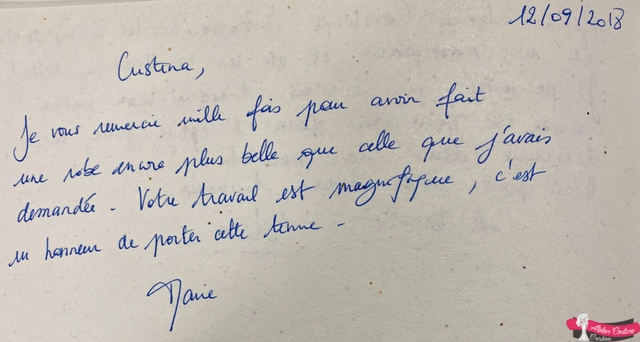 12/09/2018
Cristina,
Je vous remercie mille fois pour avoir fait
une robe encore plus belle que celle que j'avais
demandée. Votre travail est magnifique, c'est
un honneur de porter cette tenue.
Marie
Atelier Couture
Cristina